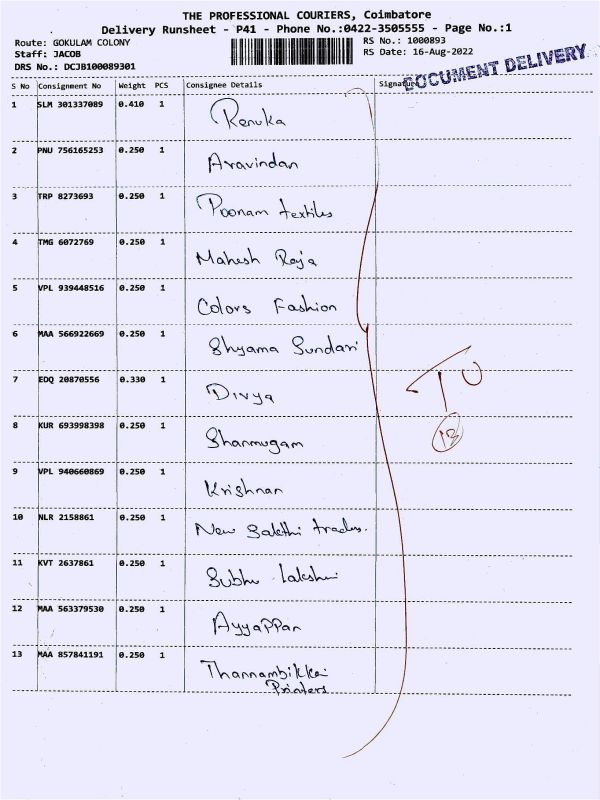 THE PROFESSIONAL COURIERS, Coimbatore
Delivery Runsheet - P41 - Phone No.:0422-3505555 - Page No.:1
Route: GOKULAM COLONY RS No.: 1000893
Staff: JACOB RS Date: 16-Aug-2022
DRS No.: DCJB100089301
DOCUMENT DELIVERY
S No Consignment No Weight PCS Consignee Details Signature
1 SLM 301337089 0.410 1 Renuka
2 PNU 756165253 0.250 1 Aravindan
3 TRP 8273693 0.250 1 Poonam textiles
4 TMG 6072769 0.250 1 Mahesh Raja
5 VPL 939448516 0.250 1 Colors Fashion
6 MAA 566922669 0.250 1 Shyama Sundari
7 EDQ 20870556 0.330 1 Divya
8 KUR 693998398 0.250 1 Shanmugam
9 VPL 940660869 0.250 1 Krishnan
10 NLR 2158861 0.250 1 New Sakthi traders.
11 KVT 2637861 0.250 1 Subhu Lakshmi
12 MAA 563379530 0.250 1 Ayyappan
13 MAA 857841191 0.250 1 Thannambikkai
Printers
13